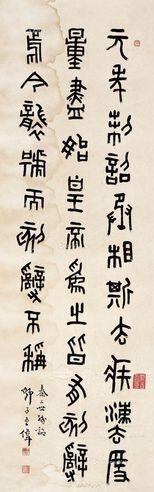 元年制詔丞相斯去疾灋度
量盡始皇帝為之皆有刻辭
焉今襲號而刻辭不稱
秦二世詔